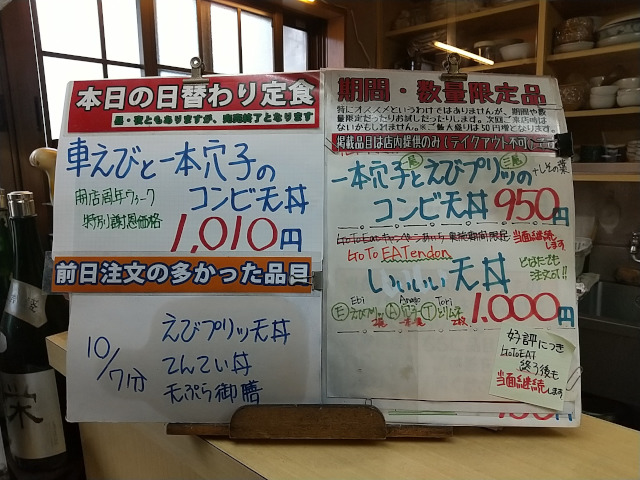 本日の日替わり定食
昼・夜ともありますが、売切終了となります
車えびと一本穴子の
コンビ天丼
開店周年ウィーク
特別謝恩価格
1,010円
前日注文の多かった品目
10/7分
えびプリッツ天丼
てんてい丼
天ぷら御膳
期間・数量限定品
特にオススメというわけではありませんが、期間や数
量限定だったりお試しだったりします。次回ご来店時は
ないかもしれません。※ご飯大盛りは50円増となります。
掲載品目は店内提供のみ(テイクアウト不可)
一本穴子とえびプリッツの
二尾
+しその葉
コンビ天丼 950円
GoToEatキャンペーン
期間限定
当面継続します
GoTo EATendon
いいいい天丼
どなたでも
注文可!!
Ebi
Anago
Tori
E えびプリッツ A 穴子 T とりムネ
1,000円
好評につき
GoToEAT
終了後も
当面継続します
栄